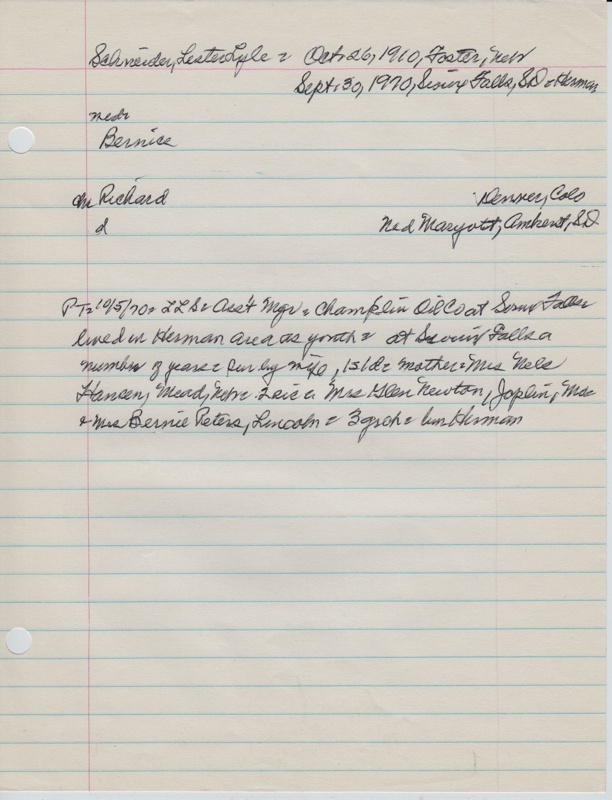 Schneider, Lester Lyle = Oct. 26, 1910, Foster, Neb
Sept. 30, 1970, Sioux Falls, SD = Herman
Bernice
Richard Denver, Colo
d Ned Maryott, Amherst, S.D.
PT = 10/5/70 = LLS = Ass't Mgr = Champlin Oil Co at Sioux Falls
lived in Herman area as youth = at Sioux Falls a
number of years = sur by wife, 1s 1d = mother = Mrs Nels
Hansen, Mead, Nebr = Mrs Glen Newton, Joplin, Mo =
& Mrs Bernie Peters, Lincoln = 3 grch = bur Herman